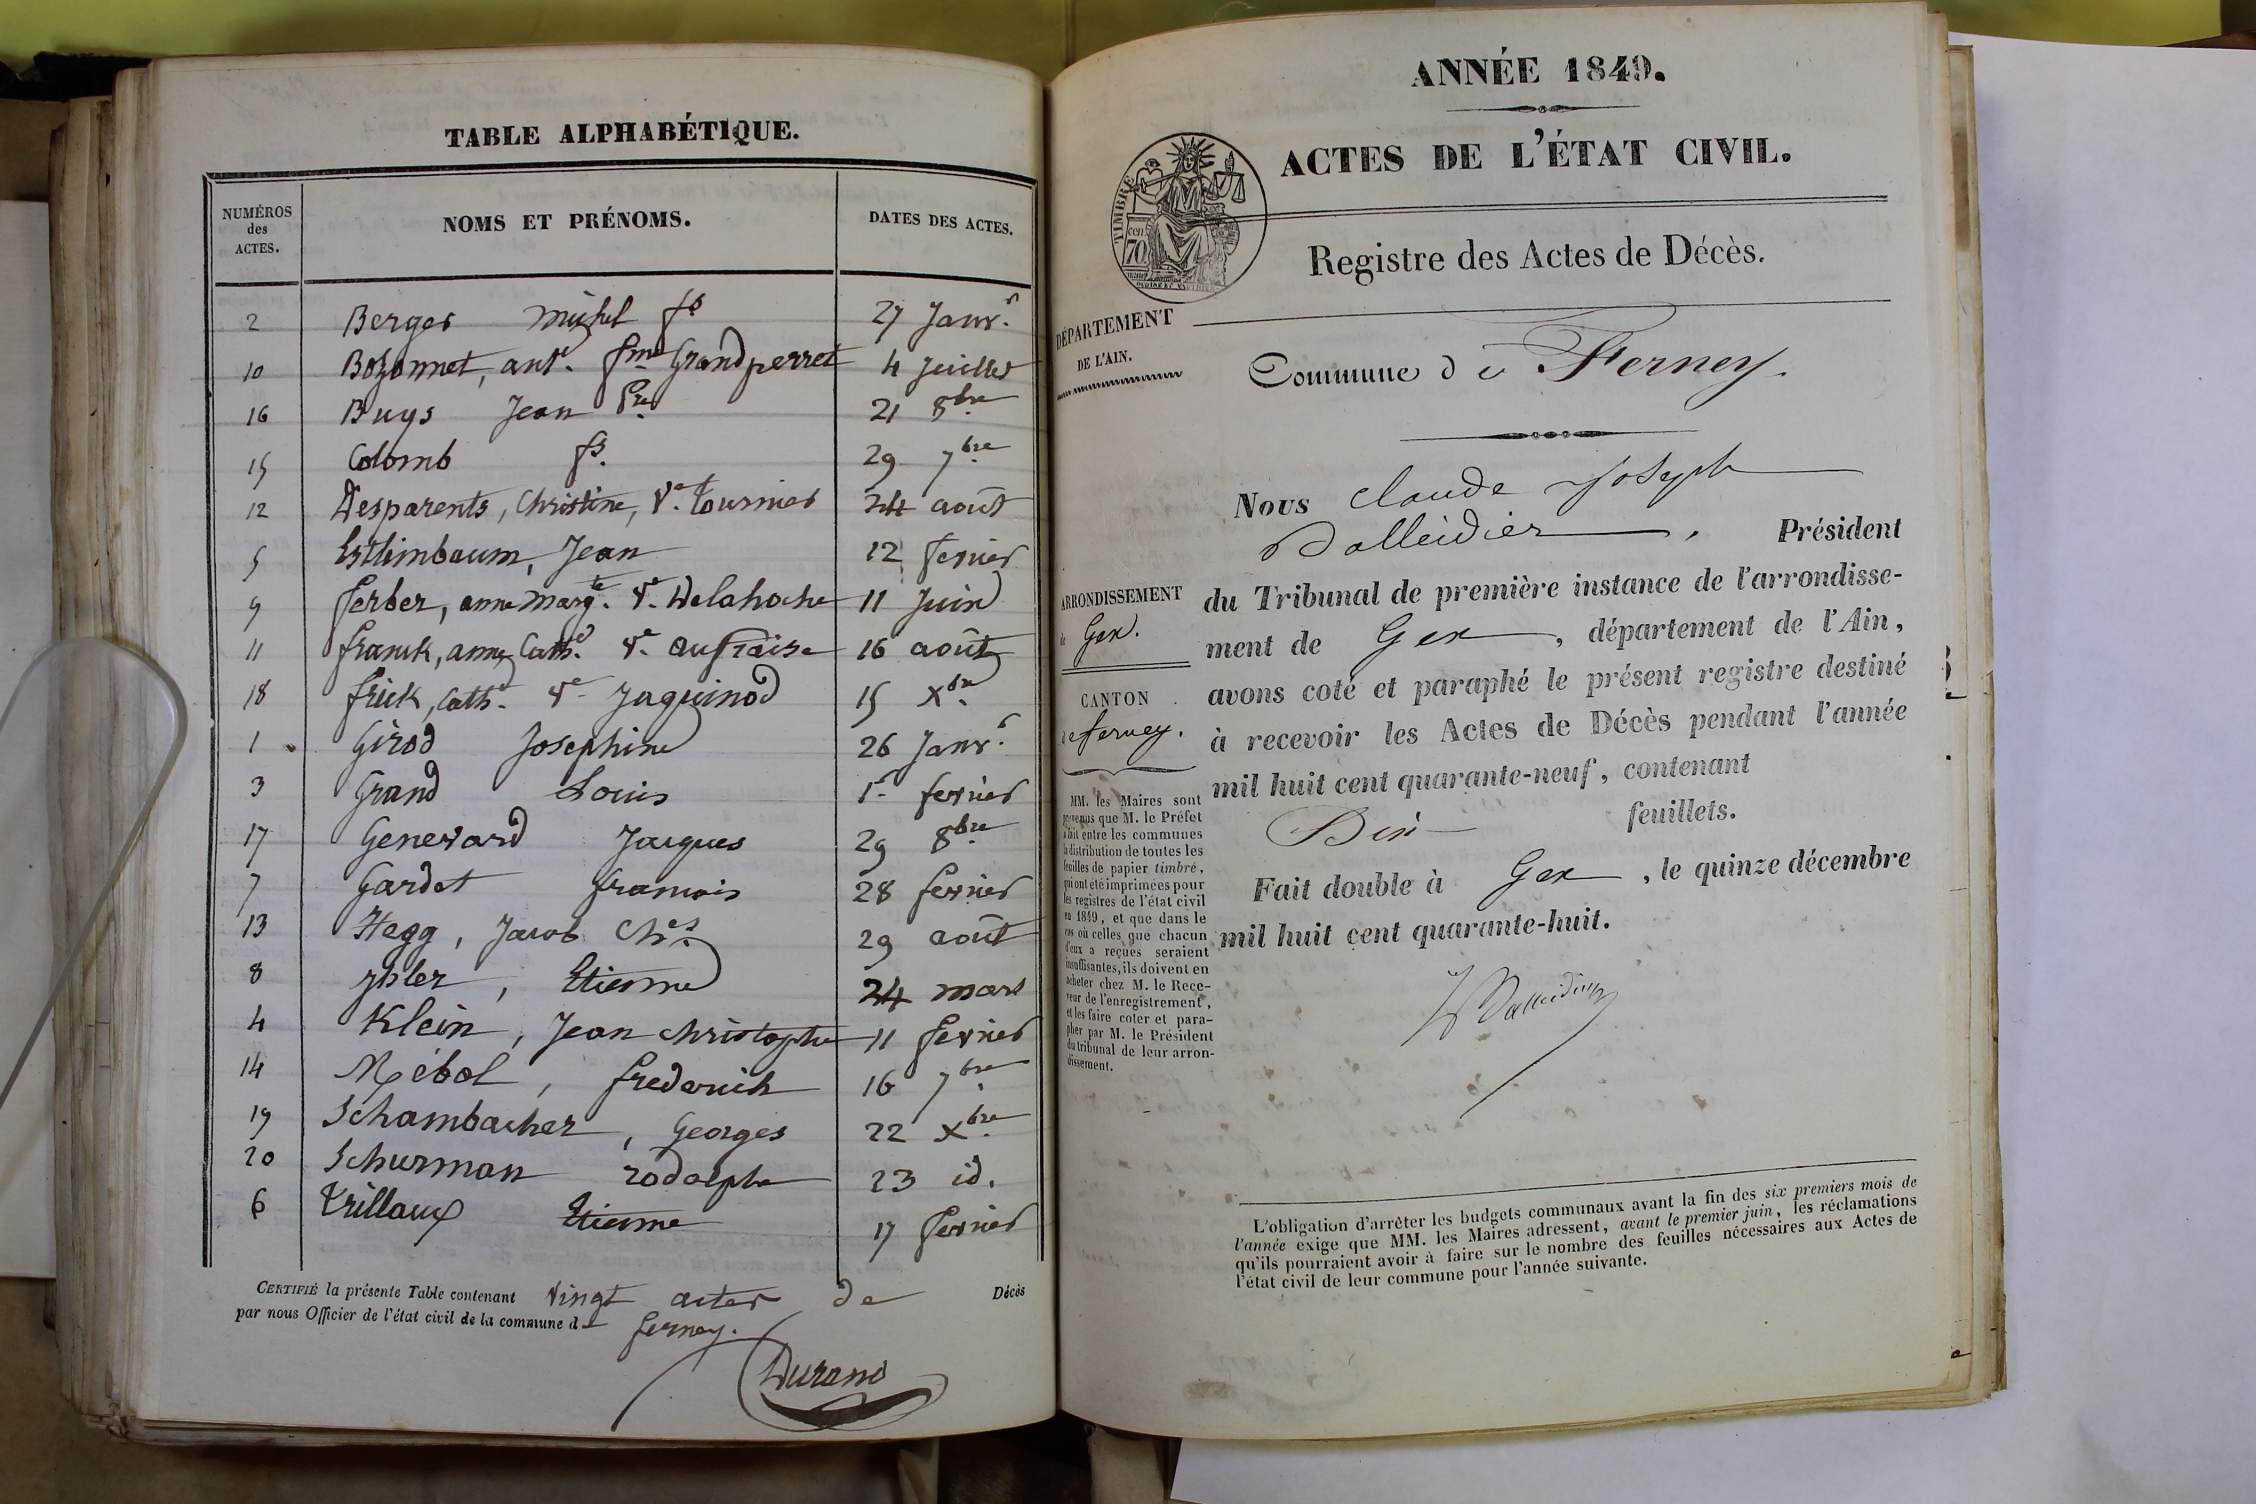 TABLE ALPHABÉTIQUE.
NUMÉROS des ACTES. NOMS ET PRÉNOMS. DATES DES ACTES.
2 Berger Michel fs 27 Janvr.
10 Bozonnet, ant. fme Grandperret 4 Juillet
16 Buys Jean Pre 21 8bre
15 Colomb fs. 29 7bre
12 Desparents, Christine, Ve. Tournier 24 août
5 Esthimbaum, Jean 12 fevrier
9 ferber, anne Margte. Ve. Delahoche 11 Juin
11 franck, anne Cathe. Ve. 16 août
18 frick, Cathe. Ve Jaquinod 15 Xbre
1 Girod Josephine 26 Janvr.
3 Grand Louis 1er fevrier
17 Genevard Jacques 29 8bre
7 Gardet francois 28 fevrier
13 Hegg, Jacob Chs. 29 août
8 Etienne 24 mars
4 Klein, Jean Christophe 11 fevrier
14 Mébol, frederich 16 7bre
19 Schambacher, Georges 22 Xbre
20 Schurman rodolphe 23 id.
6 Etienne 17 fevrier
CERTIFIÉ la présente Table contenant vingt actes de Décès
par nous Officier de l'état civil de la commune de ferney.
Durand
ANNÉE 1849.
ACTES DE L'ÉTAT CIVIL.
TIMBRE
70 cen
Registre des Actes de Décès.
DÉPARTEMENT
DE L'AIN.
Commune de Ferney.
ARRONDISSEMENT
de Gex.
CANTON
de ferney.
MM. les Maires sont
prévenus que M. le Préfet
a fait entre les communes
la distribution de toutes les
feuilles de papier timbré,
qui ont été imprimées pour
les registres de l'état civil
en 1849, et que dans le
cas où celles que chacun
d'eux a reçues seraient
insuffisantes, ils doivent en
acheter chez M. le Rece-
veur de l'enregistrement,
et les faire coter et para-
pher par M. le Président
du tribunal de leur arron-
dissement.
Nous Claude Joseph
Balleidier, Président
du Tribunal de première instance de l'arrondisse-
ment de Gex, département de l'Ain,
avons coté et paraphé le présent registre destiné
à recevoir les Actes de Décès pendant l'année
mil huit cent quarante-neuf, contenant
Dix feuillets.
Fait double à Gex, le quinze décembre
mil huit cent quarante-huit.
Balleidier
L'obligation d'arrêter les budgets communaux avant la fin des six premiers mois de
l'année exige que MM. les Maires adressent, avant le premier juin, les réclamations
qu'ils pourraient avoir à faire sur le nombre des feuilles nécessaires aux Actes de
l'état civil de leur commune pour l'année suivante.